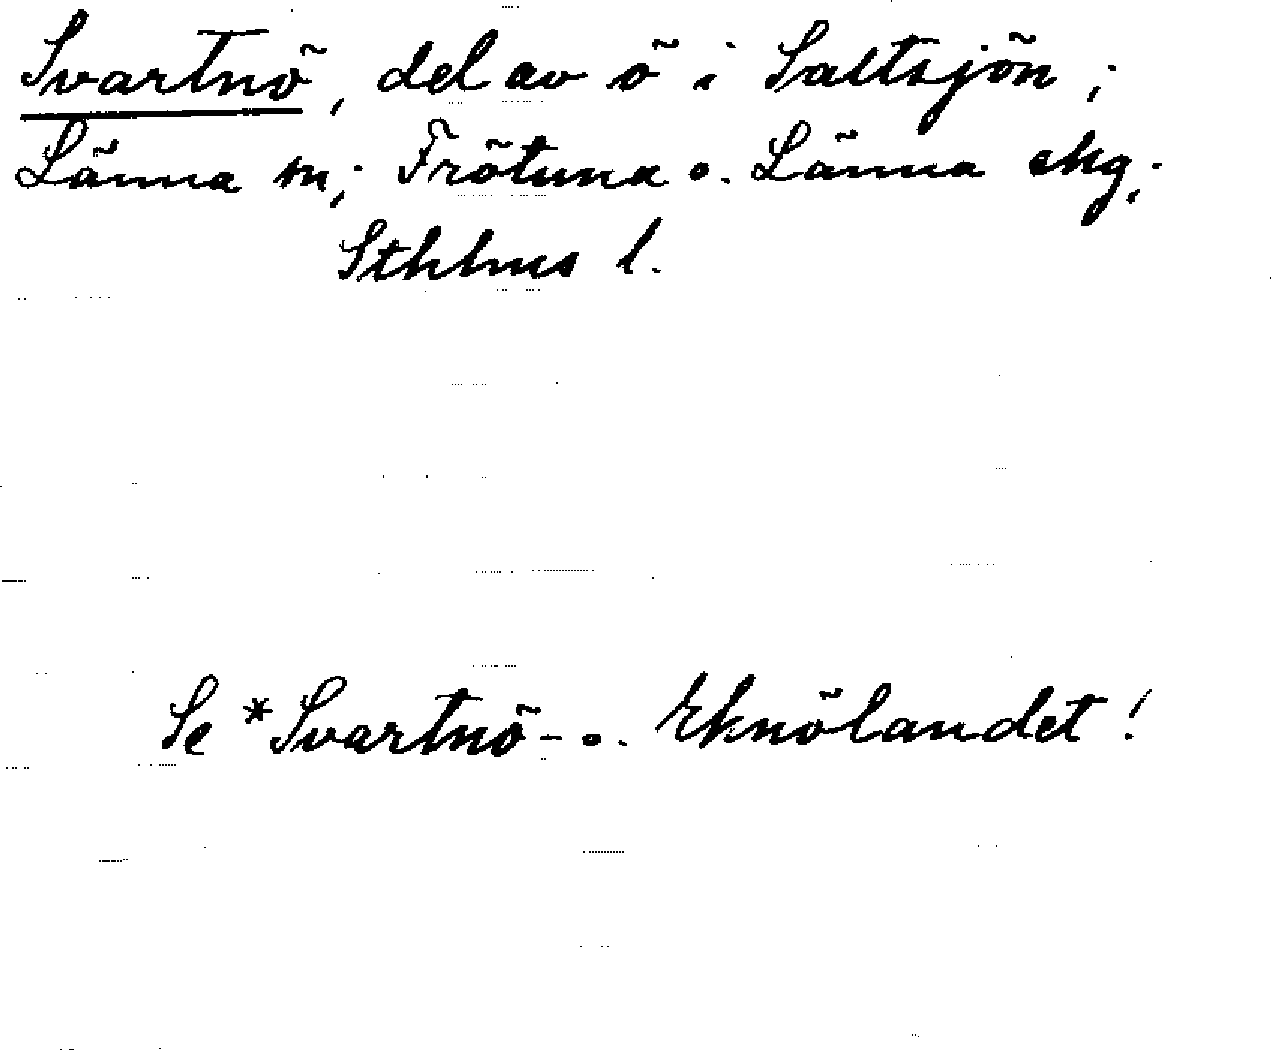 Svartnö, del av ö i Saltsjön;
Länna sn; Frötuna o. Länna skg;
Sthlms l.
Se *Svartnö- o. Eknölandet!